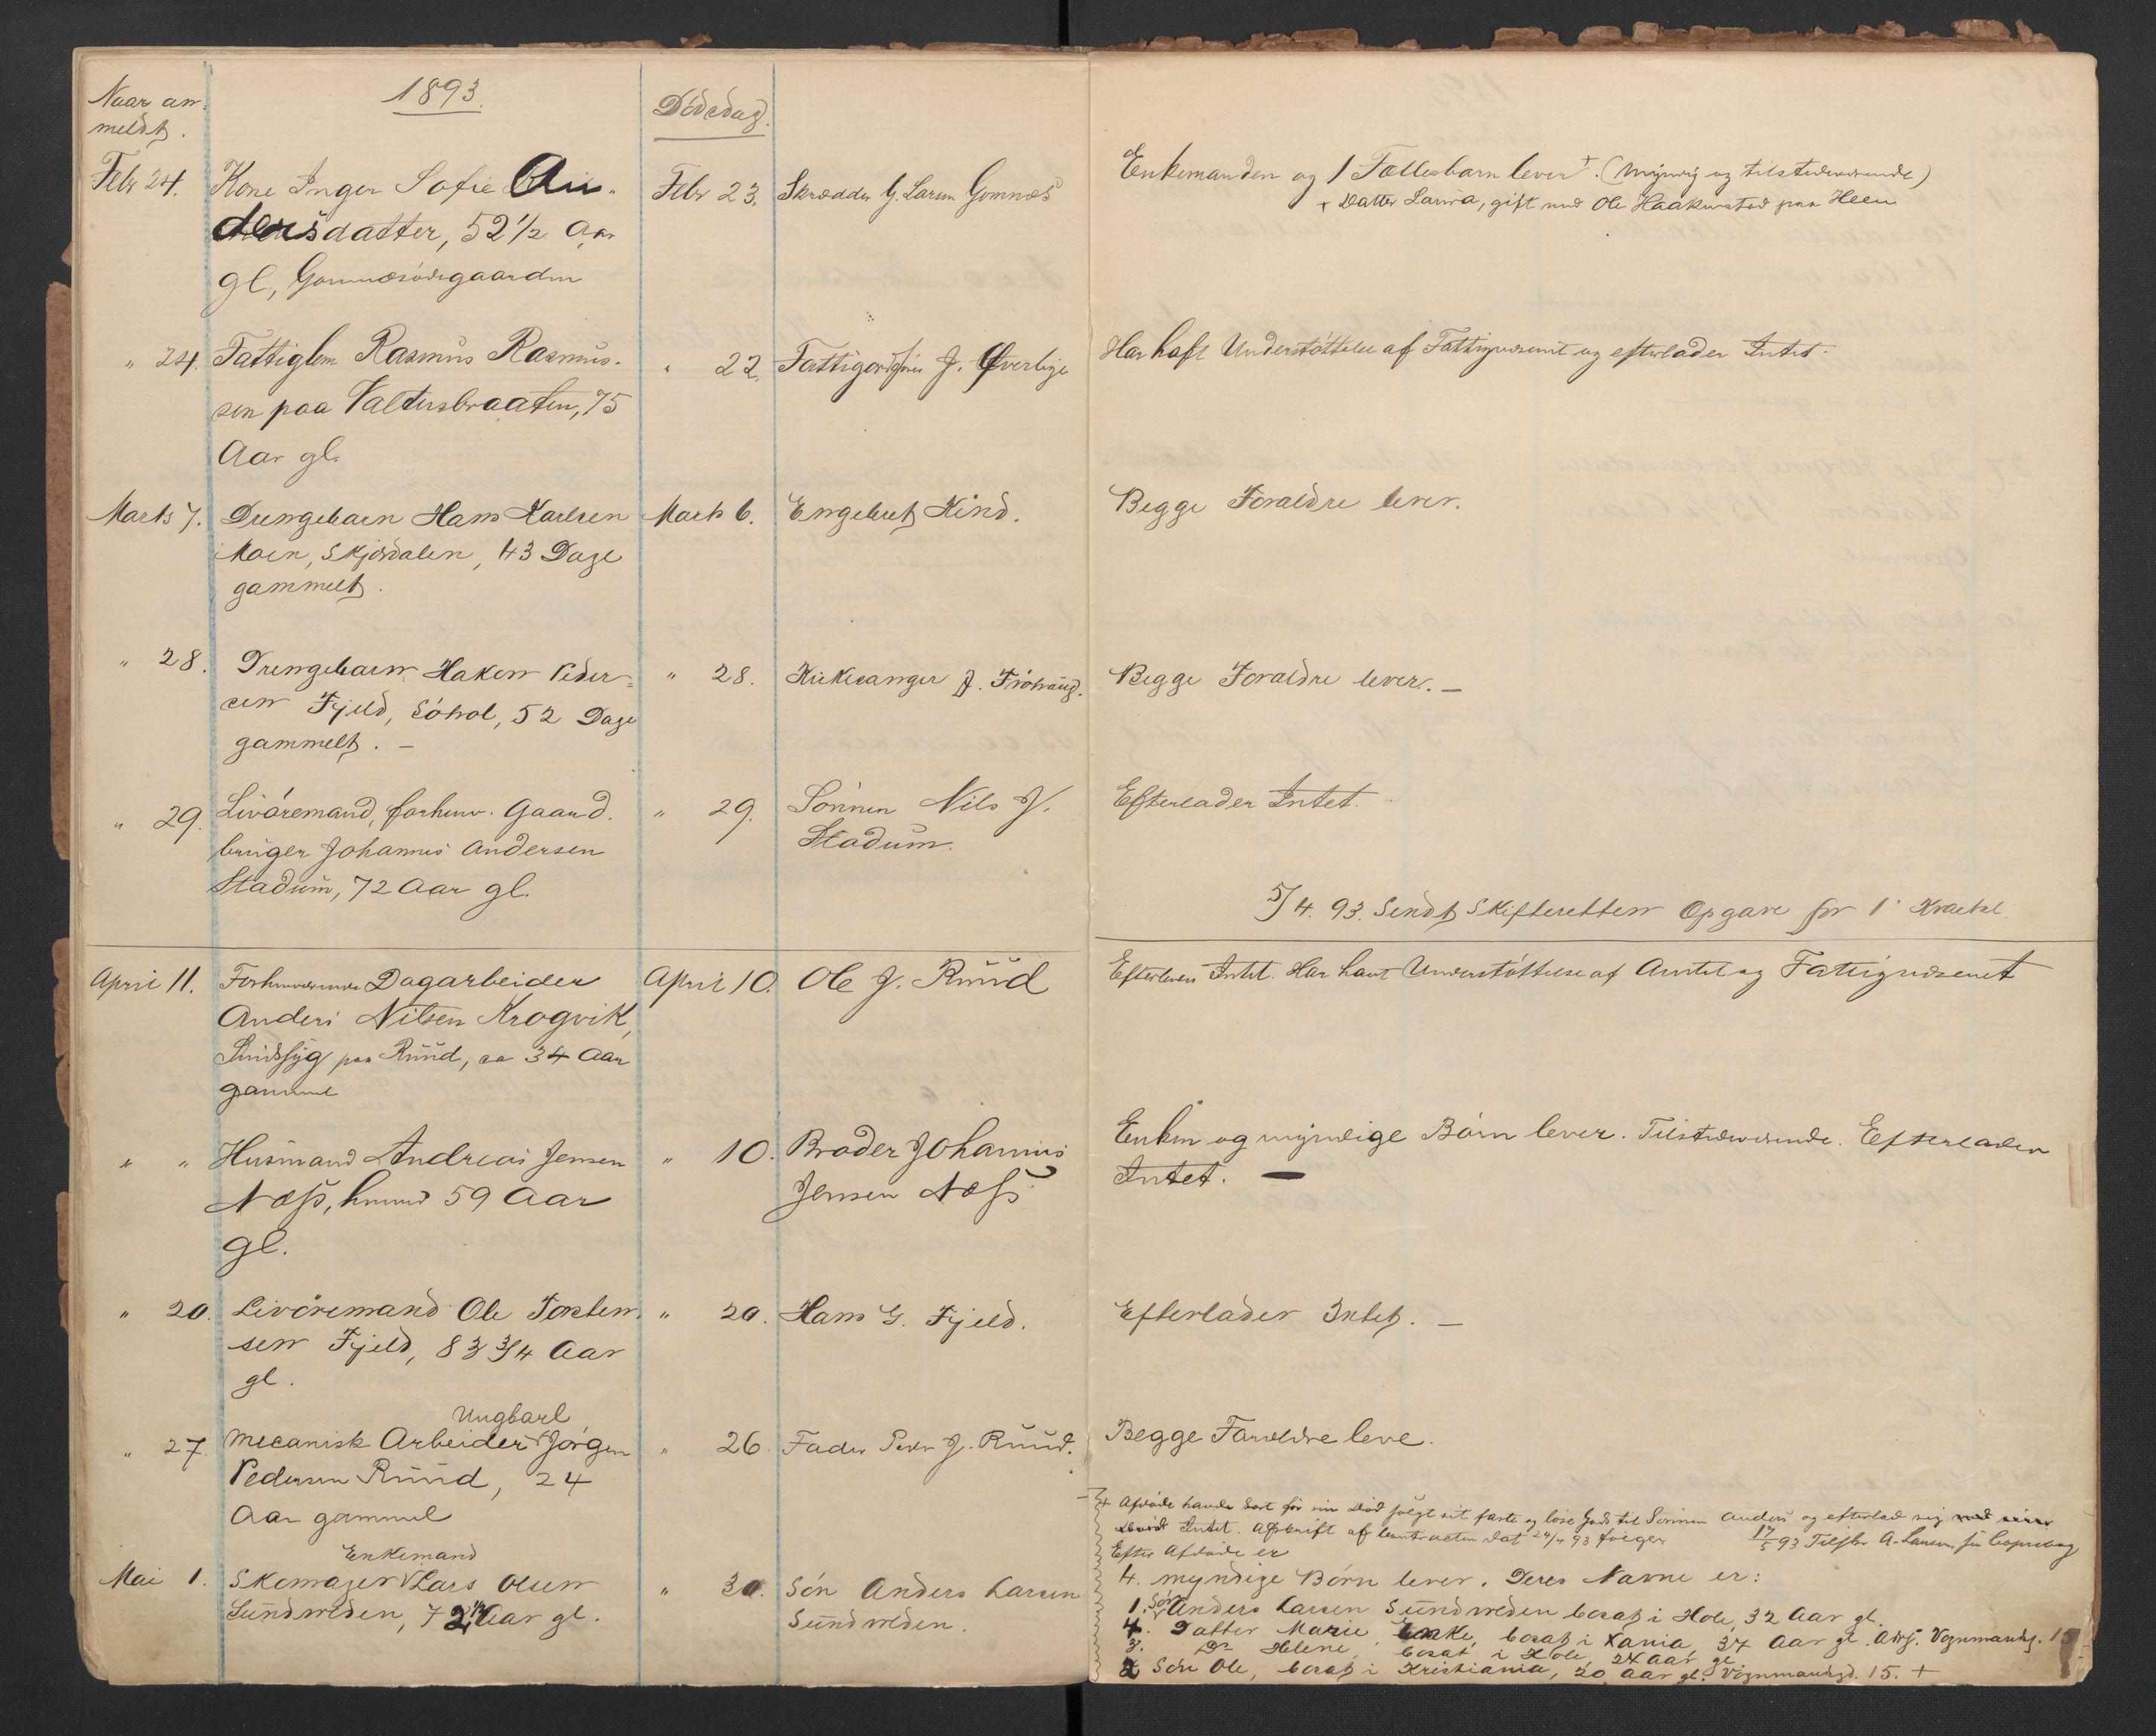 Naar an-
meldt.
1893.
Dödsdag.
Febr 24.
Kone Inger Sofie An-
dersdatter, 52 1/2 Aar
gl, Gomnæsödegaarden
Febr 23.
Skrædder G. Larsen Gomnæs
Enkemanden og 1 Fællesbarn lever +. (Myndig og tilstedeværende)
+ Datter Laura, gift med Ole Haakenstad paa Heen
" 24.
Fattiglem Rasmus Rasmus-
sen paa Valtersbraaten, 75
Aar gl.
" 22.
J. Qverlige
Har haft Understöttelse af Fattigvæsenet og efterlader Intet.
Marts 7.
Drengebarn Hans Karlsen
Moen, Skjördalen, 43 Dage
gammelt.
Marts 6.
Engebret Kind.
Begge Forældre lever.
" 28.
Drengebarn Haken Peder=
sen Fjeld, Söhol, 52 Dage
gammelt. -
" 28.
Kirkesanger J. Fröhaug.
Begge Forældre lever. -
" 29.
Livöremand, forhenv. Gaard-
bruger Johannes Andersen
Stadum, 72 Aar gl.
" 29.
Sönnen Nils J.
Stadum.
Efterlader Intet.
5/4. 93. Sendt Skifteretten Opgave for 1' Kvartal.
April 11.
Forhenværende Dagarbeider
Anders Nilsen Krogvik,
Sindssyg paa Ruud, ca 34 Aar
gammel
April 10.
Ole J. Ruud
Intet. Har havt Understöttelse af Amtet og Fattigvæsenet
" "
Husmand Andreas Jensen
Næss, 59 Aar
gl.
" 10.
Broder Johannes
Jensen Næss
Enken og myndige Börn lever. Tilstedeværende. Efterlader
Intet. -
" 20.
Livöremand Ole Torsten-
sen Fjeld, 83 3/4 Aar
gl.
" 20.
Hans G. Fjeld.
Efterlader Intet. -
" 27.
Ungkarl
Mecanisk Arbeider Jörgen
Pedersen Ruud, 24
Aar gammel
" 26.
Fader Peder J. Ruud.
Begge Forældre leve.
+ Afdöde havde kort för sin Död solgt sit faste og löse Gods til Sönnen Anders og efterlod sig
Intet. Afskrift af kontracten dat 24/4 93 fölger. 17/5 93 A. Larsen
Efter Afdöde er
Mai 1.
Enkemand
Skomager Lars Olsen
Sundvolden, 72 1/2 Aar gl.
" 30.
Sön Anders Larsen
Sundvolden.
4. myndige Börn lever. Deres Navne er:
1. Sön Anders Larsen Sundvolden bosat i Hole, 32 Aar gl.
4. Datter Marie, Enke, bosat i Xania, 37 Aar gl. Adrs. Vognmandsg. 15
3. Do Helene, bosat i Hole, 24 Aar gl.
2 Sön Ole, bosat i Kristiania, 30 Aar gl. Vognmandsgd. 15. +